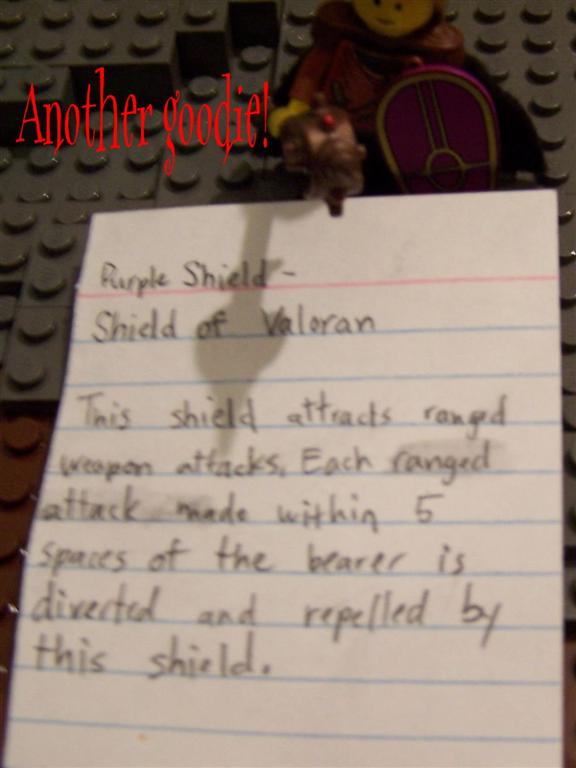 Another goodie!
Purple Shield -
Shield of Valoran
This shield attracts ranged
weapon attacks. Each ranged
attack made within 5
spaces of the bearer is
diverted and repelled by
this shield.